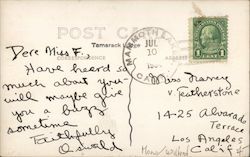 POST CARD
Tamarack Lodge
CORRESPONDENCE
MAMMOTH LAKES
JUL
10
CALIF
1 CENT 1
Dere Miss F.
Have heard so
much about you
will maybe give
you a buzz
sometime
Faithfully
Oswald
Miss Harvey
Featherstone
14-25 Alvarado
Terrace
Los Angeles
Calif